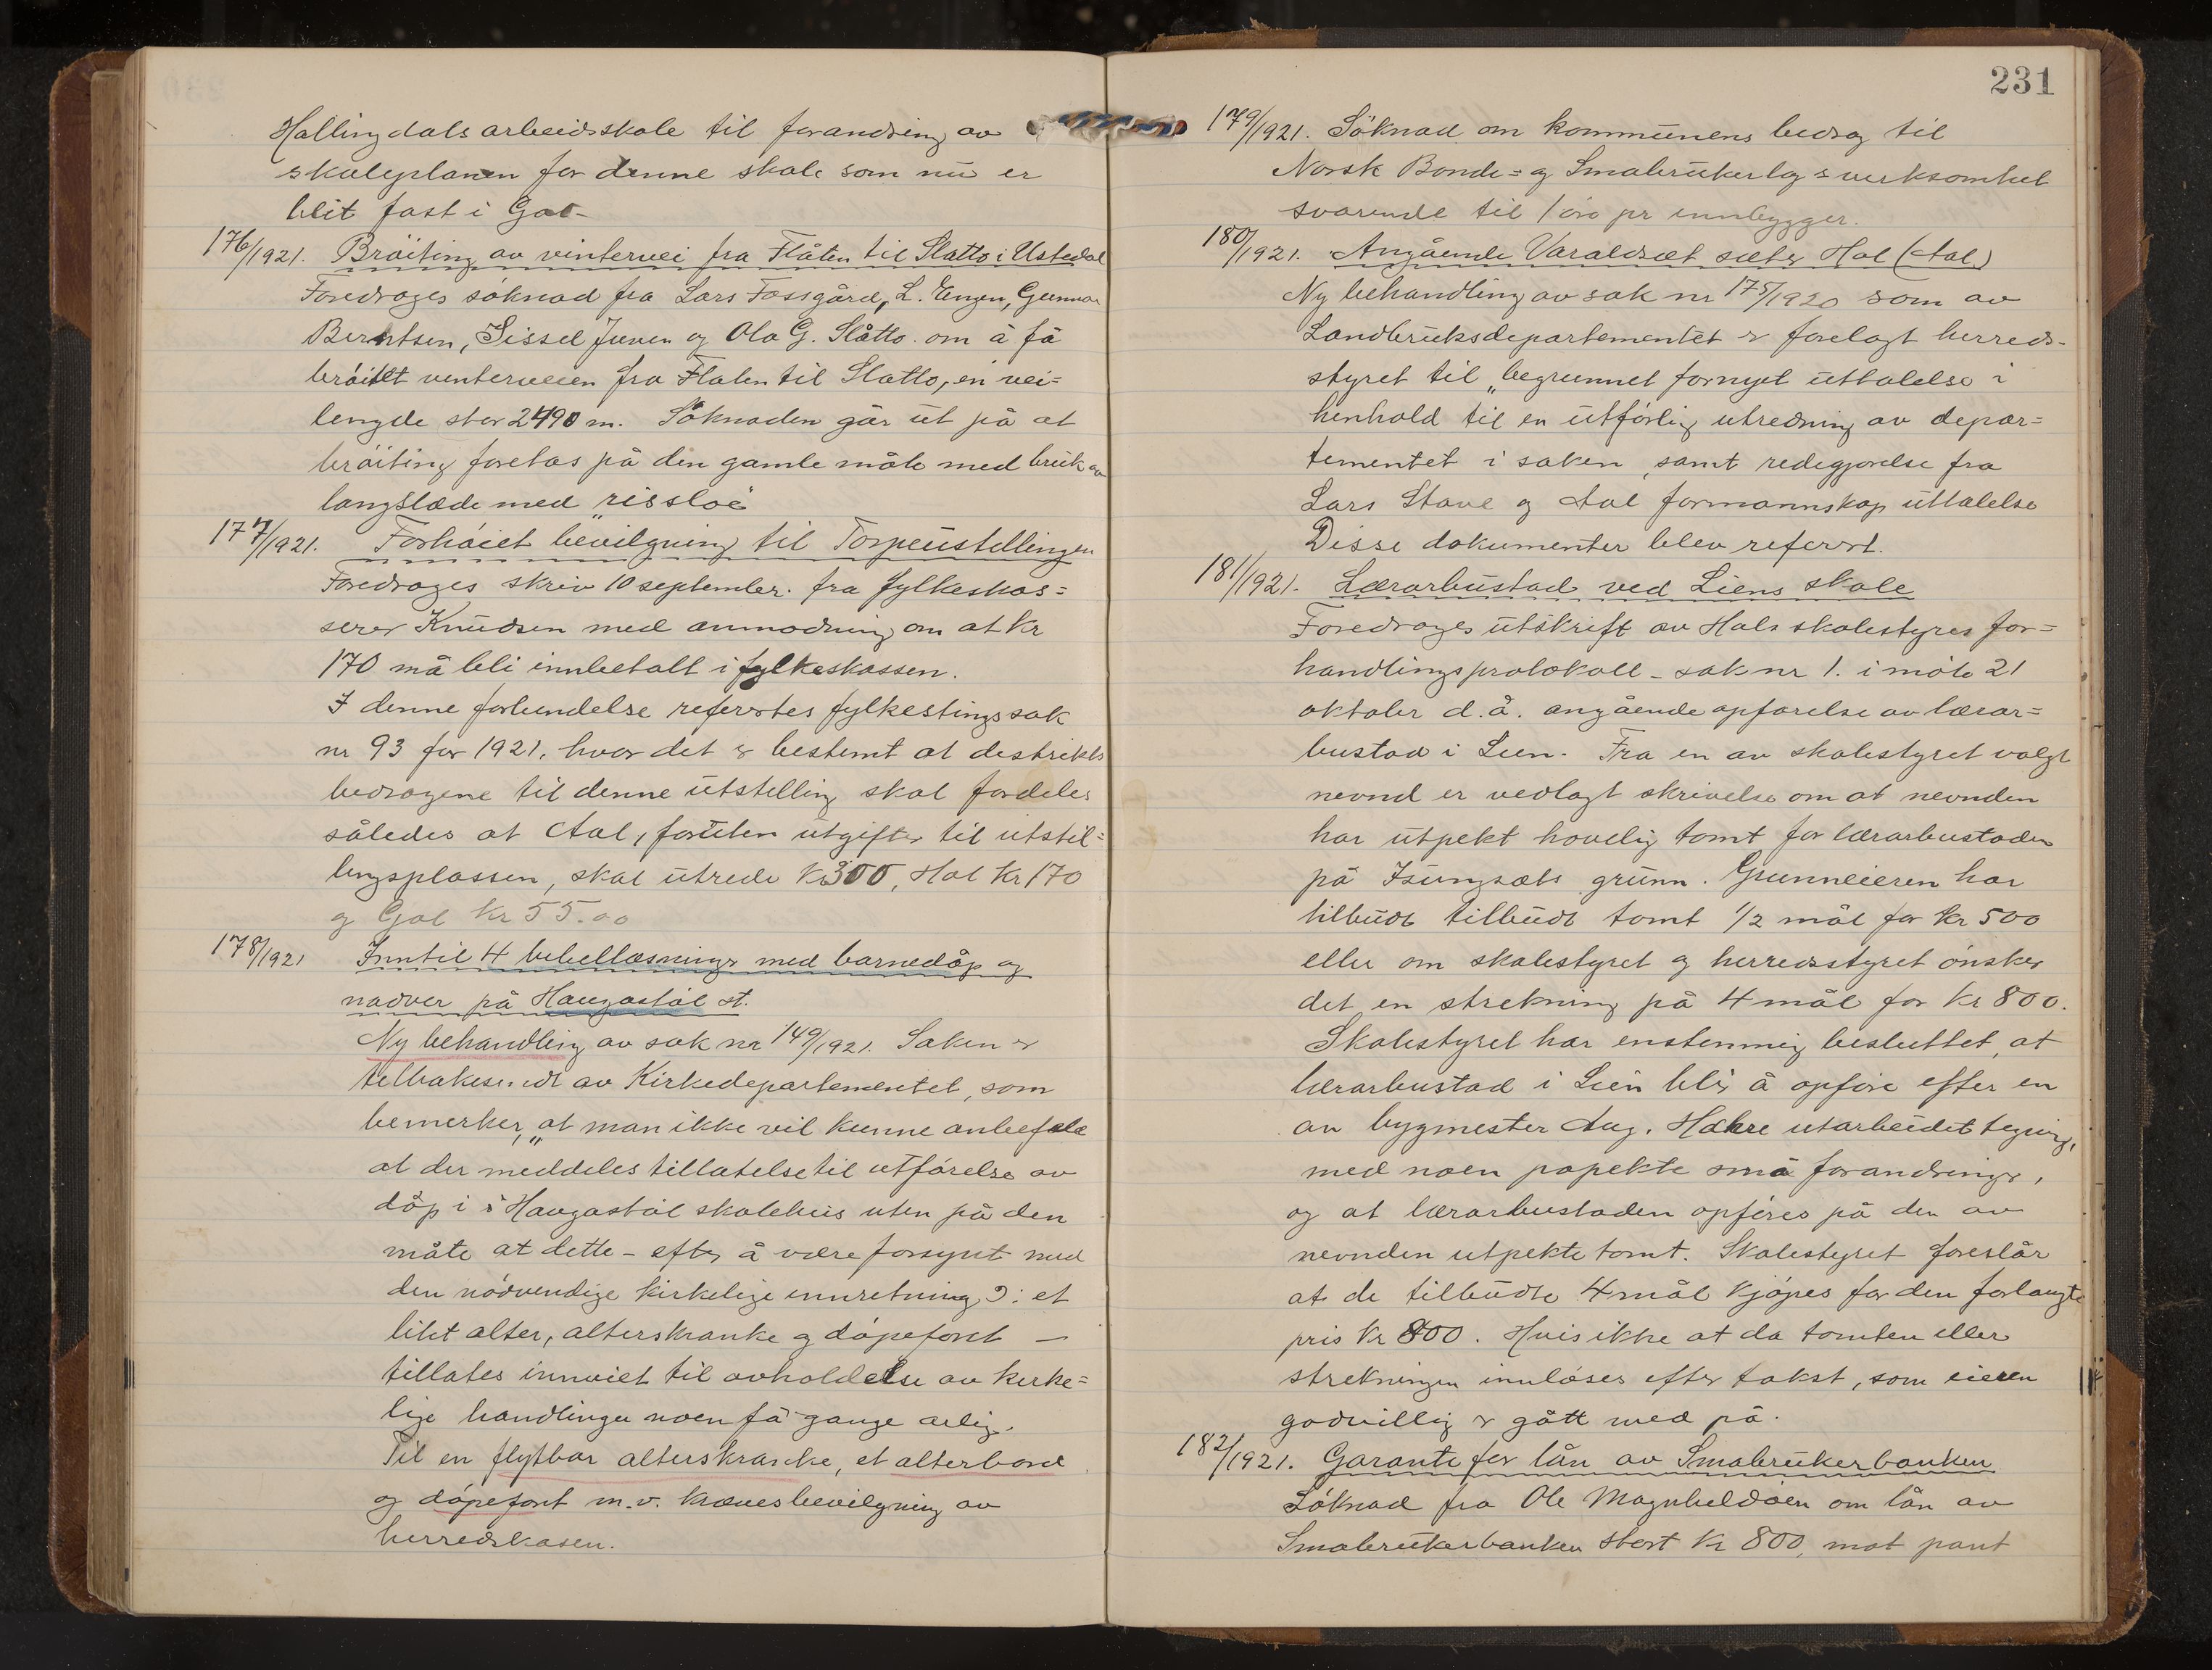 Hallingdals arbeidsskole til forandring av
skoleplanen for denne skole som nu er
blit fast i Gol-
176/1921. Bröiting av vintervei fra Flåten til Slatto i Ustedal
Foredroges söknad fra Lars Fossgård, L. Engen, Gunnar
Berntsen, Sissel Juven og Ola G. Slåtto om å få
bröitet vinterveien fra Flaten til Slatto, en vei=
lengde stor 2490 m. Söknaden går ut på at
bröiting foretas på den gamle måte med bruk av
langslæde med "rissloe"
177/1921. Forhöiet bevilgning til Torpeustellingen
Foredroges skriv 10 september fra fylkeskas=
serer Knudsen med anmodning om at kr
170 må bli innbetalt i fylkeskassen.
I denne forbindelse refertes fylkestingssak
nr 93 for 1921, hvor det er bestemt at destrikts
bedragene til denne utstelling skal fordeles
således at Aal, foruten utgifter til utstil=
lingsplassen, skal utrede Kr 300, Hol Kr 170
og Gol Kr 55.00
178/1921 Inntil 4 bibellæsninger med barnedåp og
nadver på Haugastöl st.
Ny behandling av sak nr 149/1921. Saken er
tilbakesendt av Kirkedepartementet, som
bemerker, "at man ikke vil kunne anbefale
at der meddeles tillatelse til utförelse av
dåp i Haugastöl skolehus uten på den
måte at dette - efter å være forsynt med
den nödvendige kirkelige innretning ɔ: et
litet alter, alterskranke og döpefont —
tillates innviet til avholdelse av kirke=
lige handlinger noen få gange arlig.
Til en flytbar alterskranke, et alterbord
og döpefont m.v. kræves bevilgning av
herredskasen.
231
179/1921. Söknad om kommunens bedrag til
Norsk Bonde= og Smabrukerlags verksomhet
svarende til 1 öre pr innbygger.
180/1921. Angående Varaldset sæter Hol (Aal)
Ny behandling av sak nr 175/1920 som av
Landbruksdepartementet er forelagt herreds-
styret til "begrunnet fornyet uttalelse i
henhold til en utförlig utredning av depar=
tementet i saken, samt redegjorelse fra
Lars Stave og Aal formannskap uttalelse
Disse dokumenter blev referert.
181/1921. Lærarbustad ved Liens skole
Foredroges utskrift av Hols skolestyres for=
handlingsprotokoll - sak nr 1. i möte 21
oktober d.å. angående opförelse av lærar=
bustad i Lien. Fra en av skolestyret valgt
nevnd er vedlagt skrivelse om at nevnden
har utpekt hovelig tomt for lærarbustaden
på grunn. Grunneieren har
tilbudt tilbudt tomt 1/2 mål for kr 500
eller om skolestyret og herredsstyret önsker
det en strekning på 4 mål for kr 800.
Skolestyret har enstemmig besluttet, at
lærarbustad i Lien blir å opföre efter en
av bygmester Aug. Hæhre utarbeidet tegning,
med noen papekte små forandringer,
og at lærarbustaden opföres på den av
nevnden utpekte tomt. Skolestyret foreslår
at de tilbudte 4 mål kjöpes for den forlangte
pris kr 800. Hvis ikke at da tomten eller
strekningen innlöses efter takst, som eieren
godvillig er gått med på.
182/1921. Garanti for lån av Smabrukerbanken
Söknad fra Ole Magnheldöen om lån av
Smabrukerbanken stort Kr 800, mot pant